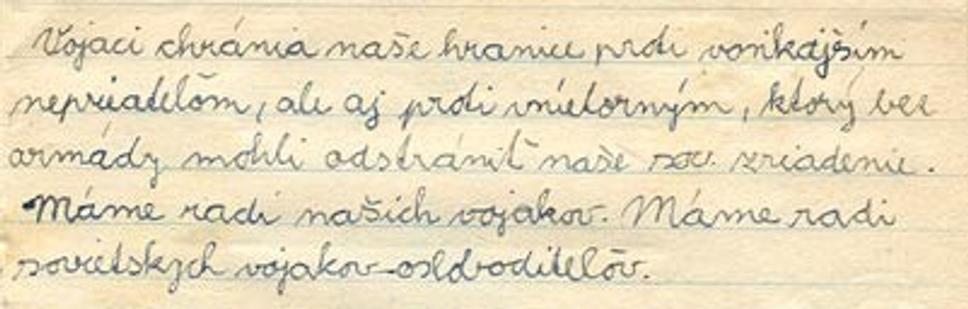 Vojaci chránia naše hranice proti vonkajším
nepriateľom, ale aj proti vnútorným, ktorý bez
armády mohli odstrániť naše soc. zriadenie.
Máme radi našich vojakov. Máme radi
sovietskych vojakov-osloboditeľov.